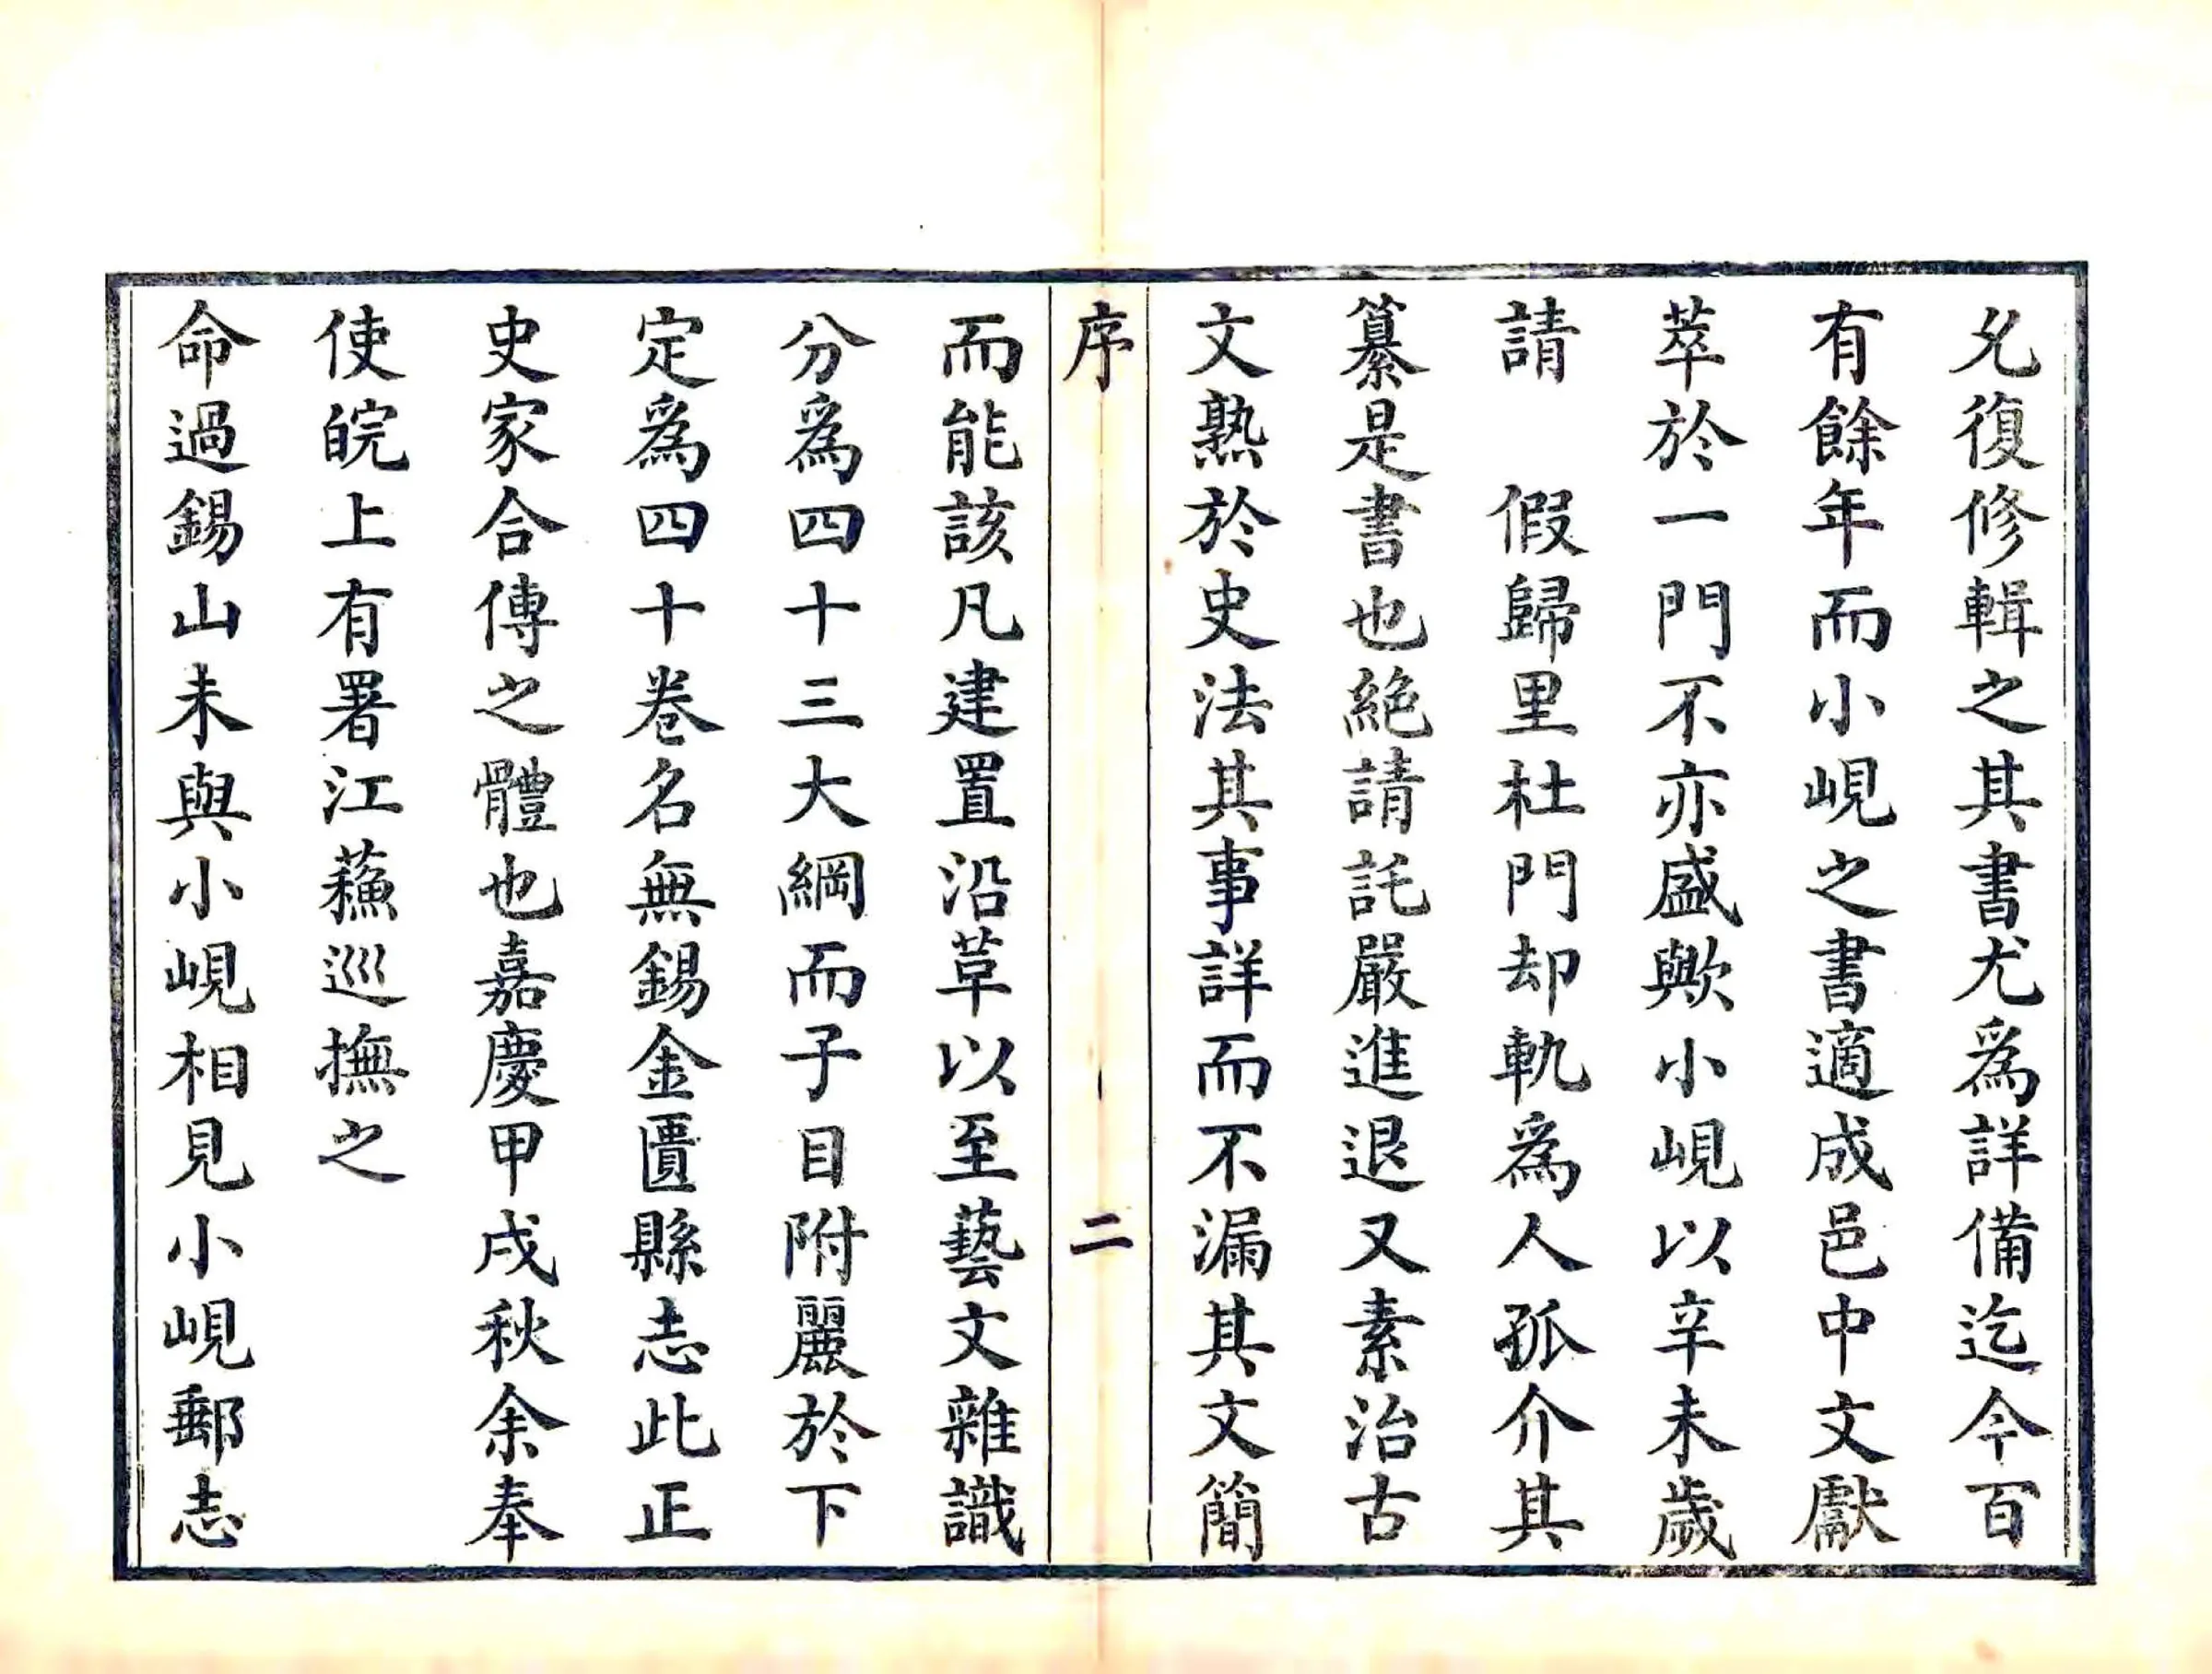 允復修輯之其書尤爲詳備迄今百
有餘年而小峴之書適成邑中文獻
萃於一門不亦盛歟小峴以辛未歲
請　假歸里杜門却軌爲人孤介其
纂是書也絕請託嚴進退又素治古
文熟於史法其事詳而不漏其文簡
序　二
而能該凡建置沿革以至藝文雜識
分爲四十三大綱而子目附麗於下
定爲四十卷名無錫金匱縣志此正
史家合傳之體也嘉慶甲戌秋余奉
使皖上有署江蘓巡撫之
命過錫山未與小峴相見小峴郵志